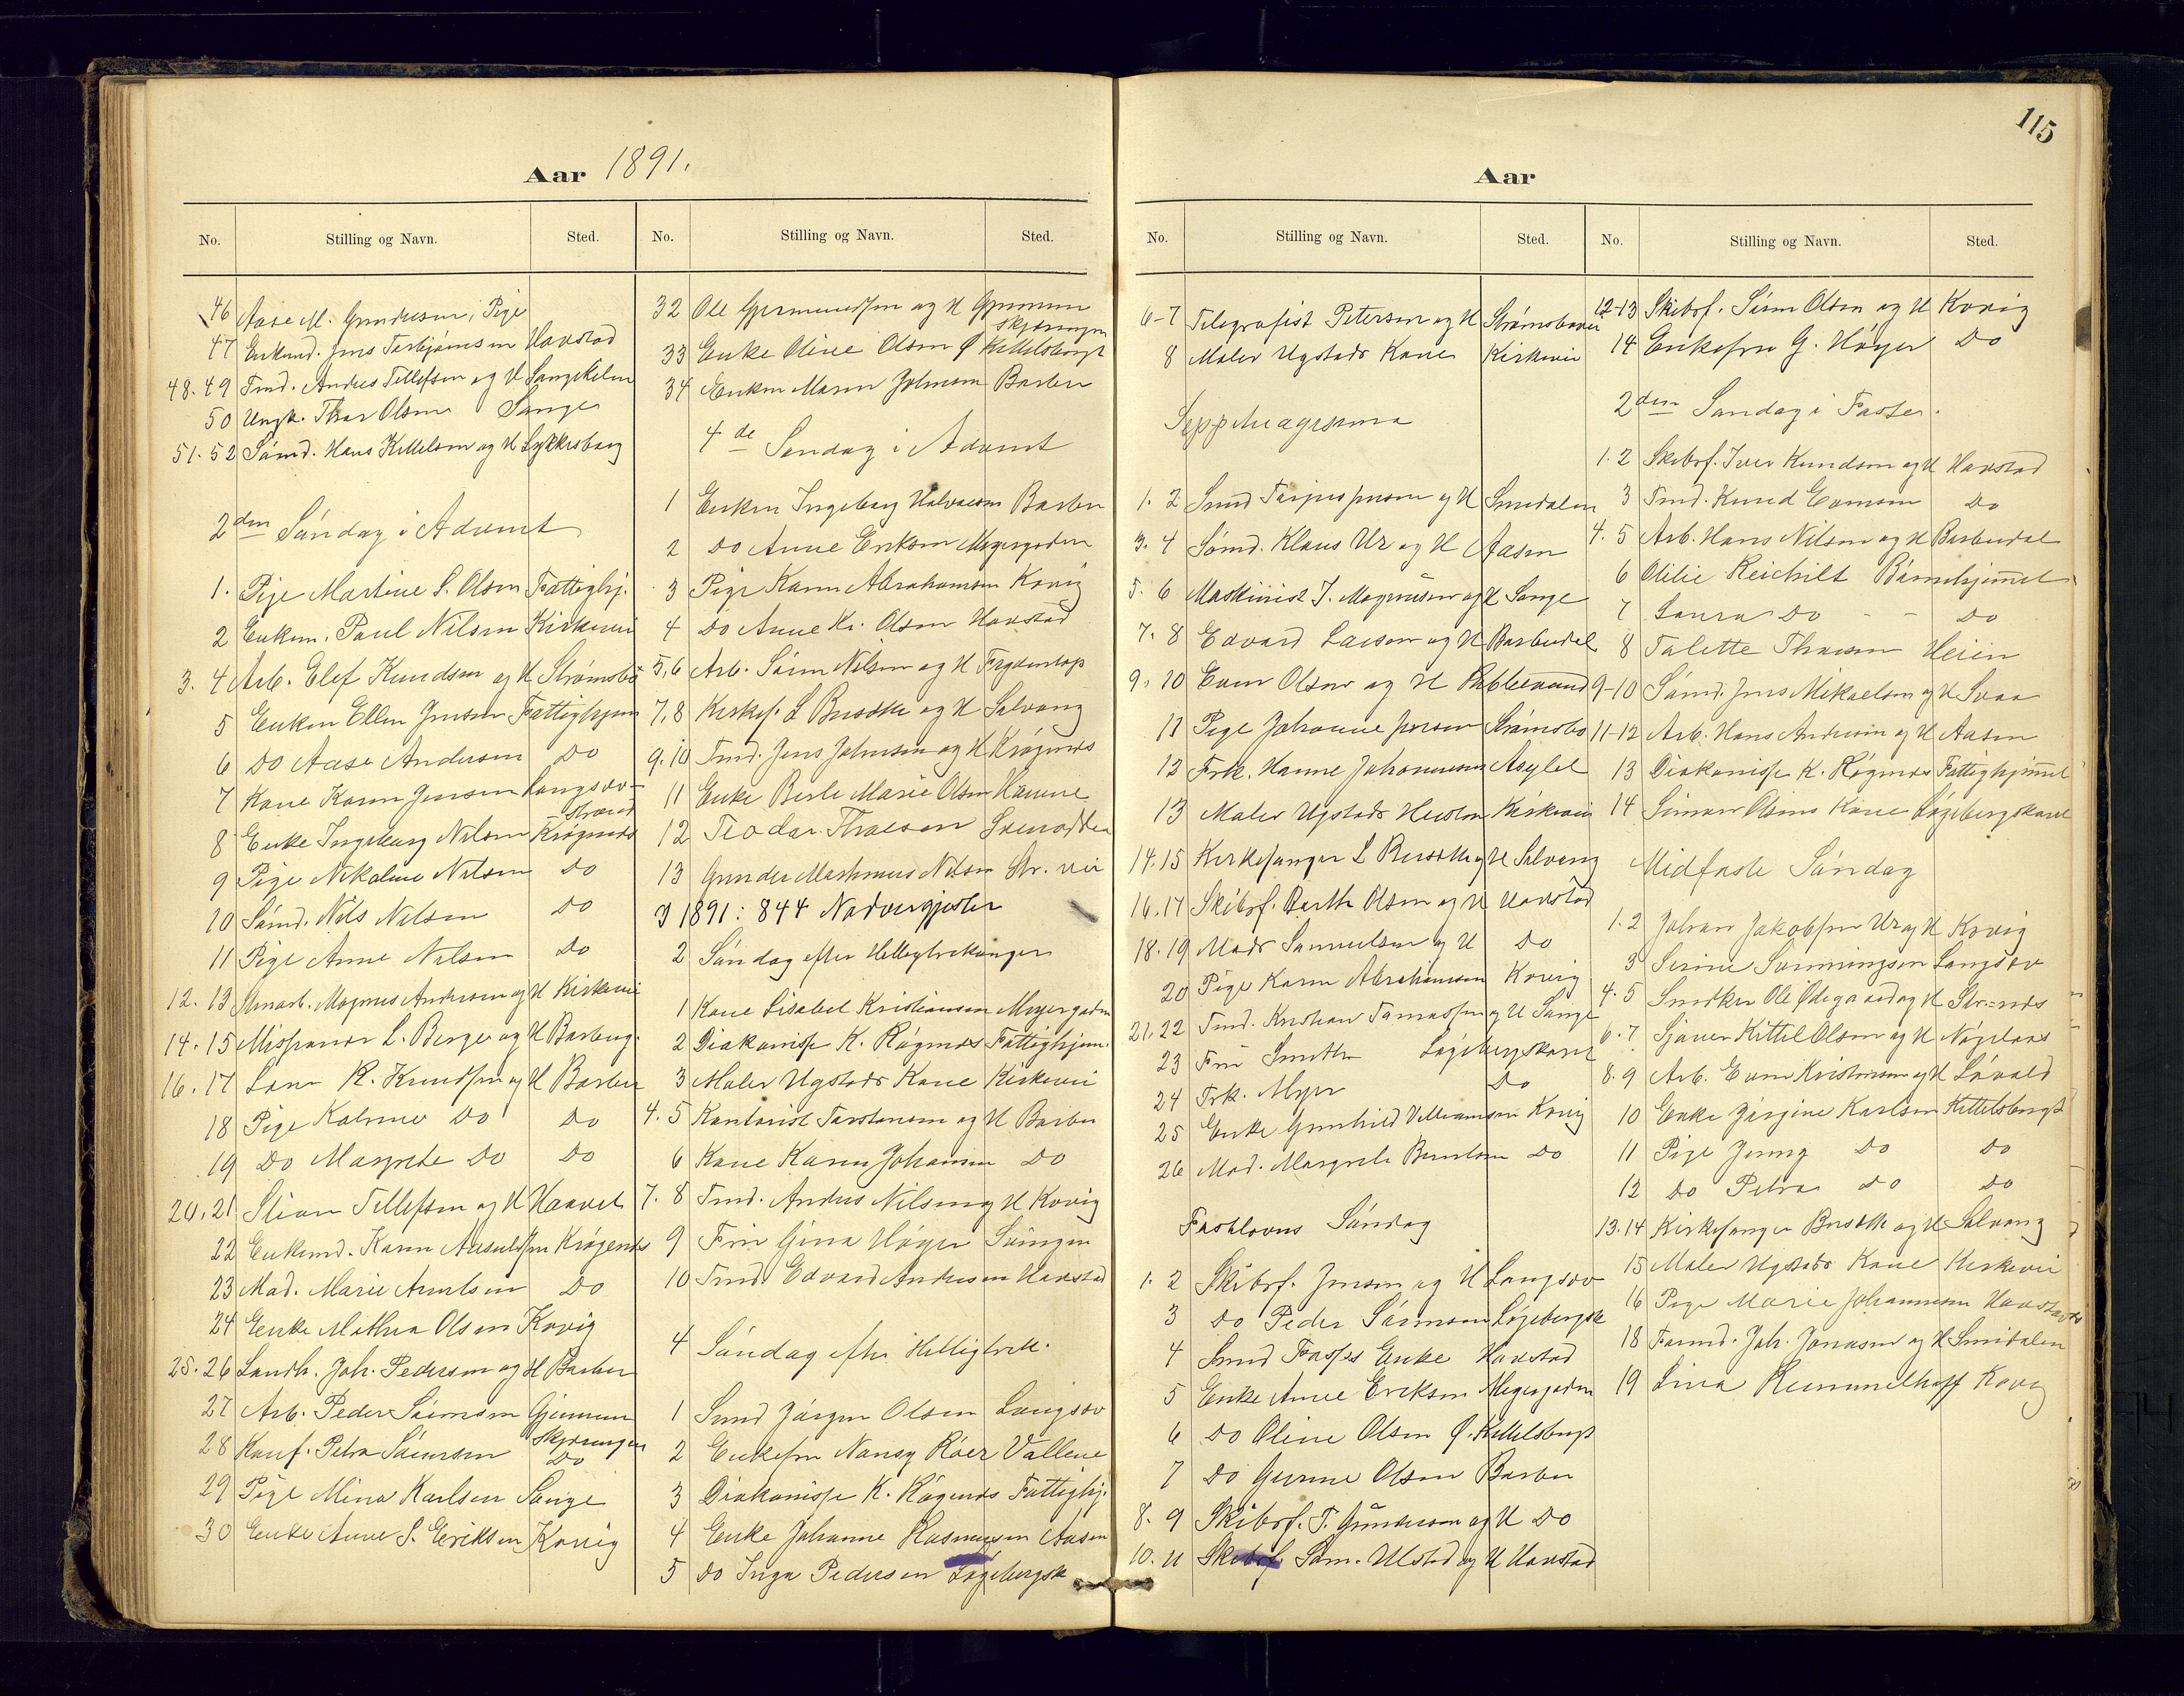 115
Aar 1891.
No. Stilling og Navn. Sted.
46 Aase M. Gundersen, Pige
47 Enkmd. Jens Torbjørnsen Havstad
48. 49 Tmd. Anders Tellefsen og H Langekilen
50 Ungk. Thor Olsen Songe
51. 52 Sømd. Hans Kittelsen og H Lykkesborg
2den Søndag i Advent
1. Pige Martine S. Olsen Fattighj.
2 Enkem. Paul Nilsen Kirkevei
3. 4 Arb. Elef Knudsen og H Strømsbo
5 Enken Ellen Jensen Fattighjem
6 Do Aase Andersen Do
7 Kone Karen Jensen Langsæv-
strand
8 Enke Ingeborg Nilsen Krøgenes
9 Pige Nikoline Nilsen Do
10 Sømd. Nils Nilsen Do
11 Pige Anne Nilsen Do
12. 13 Magnus Andersen og H Kirkevei
14. 15 Missionær L. Berge og H Barbug.
16. 17 Lars K. Knudsen og H Barbu
18 Pige Kaline Do Do
19 Do Margrete Do Do
20. 21 Stian Tellefsen og H Haavet
22 Enkemd. Karen Aasulfsen Krøgenes
23 Mad. Marie Arntsen Do
24 Enke Mathea Olsen Kovig
25. 26 Landh. Joh. Pedersen og H Barbu
27 Arb. Peder Simonsen Gjennem
skjæringen
28 Konf. Petra Simonsen Do
29 Pige Mina Karlsen Songe
30 Enke Anne S. Eriksen Kovig
No. Stilling og Navn. Sted.
32 Ole Gjermundsen og H Gjennem
skjæringen
33 Enke Oline Olsen Ø Kittelsbugt
34 Enken Maren Johnsen Barbu
4de Søndag i Advent
1 Enken Ingeborg Halvorsen Barbu
2 Do Anne Eriksen Meyergaden
3 Pige Karen Abrahamsen Kovig
4 Do Anne Kr. Olsen Havstad
5,6 Arb. Søren Nilsen og H Frydentop
7,8 Kirkes. L Busdke og H Solvang
9. 10 Tmd. Jens Johnsen og H Krøgenes
11 Enke Berte Marie Olsen Hamne
12 Teodor Thorsen
13 Gunder Mathisens Nilsen Str. vei
I 1891: 844 Nadvergjester
2 Søndag efter Helligtrekonger
1 Kone Lisabet Kristiansen Meyergaden
2 Diakonisse K. Røgenes Fattighjem.
3 Maler Ugstads Kone Kirkevei
4. 5 Kontorist Torstensen og H Barbu
6 Kone Karen Johansen Do
7. 8 Tmd. Anders Nilsen og H Kovig
9 Frø Gina Høyer Svingen
10 Tmd. Edvard Andersen Havstad
4 Søndag efter Helligtrek.
1 Smed Jørgen Olsen Langsæv
2 Enkefru Nansy Røer Vallene
3 Diakonisse K. Røgenes Fattighj.
4 Enke Johanne Rasmussen Aasen
5 Do Inga Pedersen Løgebergsk
Aar
No. Stilling og Navn. Sted.
6-7 Telegrafist Petersen og H Strømsbovei
8 Maler Ugstads Kone Kirkevei
Septuagesima
1. 2 Smed og H Smedalen
3. 4 Sømd. Klaus Ur og H Aasen
5. 6 Maskinist J. Magnusen og H Songe
7. 8 Edvard Larsen og H Barbudal
9. 10 Even Olsen og H
11 Pige Johanne Jensen Strømsbo
12 Frk. Hanne Johannesen Asylet
13 Maler Ugstads Kirkevei
14. 15 Kirkesanger L Busdke og H Solvang
16. 17 Skibsf. Berth Olsen og H Havstad
18. 19 Mads Samuelsen og H Do
20 Pige Karen Abrahamsen Kovig
21. 22 Tmd. Kristian Tomassen og H Songe
23 Fru Smith Løgebergskaret
24 Frk. Myer Do
25 Enke Gunhild Villiamsen Kovig
26 Mad. Margrete Berntsen Do
Fastelavns Søndag
1. 2 Skibsf. Jensen og H Langsæv
3 Do Peder Sørensen Løgebergsk
4 Smed Enke Havstad
5 Enke Anne Eriksen Megergaden
6 Do Oline Olsen Ø. Kittelsbugt
7 Do Gurine Olsen Barbu
8. 9 Skibsf. T. Gundersen og H Do
10. 11 Skibsf. Sam. Ulstad og H Havstad
No. Stilling og Navn. Sted.
12-13 Skibsf. Søren Olsen og H Kovig
14 Enkefru G. Høyer Do
2den Søndag i Faste.
1. 2 Skibsf. Iver Knudsen og H Havstad
3 Tmd. Knud Evensen Do
4. 5 Arb. Hans Nilsen og H Barbudal
6 Otilie Reichilt Børnehjemmet
7 Laura Do - - Do
8 Talette Thorsen Heien
9-10 Sømd. Jens Mikaelsen og H Svaa
11-12 Arb. Hans Andersen og H Aasen
13 Diakonisse K. Røgenes Fattighjemmet
14 Simon Olsens Kone Løgebergskaret
Midfaste Søndag
1. 2 Johan Jakobsen Ur og H Kovig
3 Serine Svenningsen Langsæv
4. 5 Snedker Ole Ødegaard og H Str=nes
6. 7 Kittil Olsen og H
8. 9 Arb. Even Kristensen og H Løvold
10 Enke Jørgine Karlsen Kittelsbugt
11 Pige Jenny Do Do
12 Do Petra Do Do
13. 14 Kirkesanger Busdke og H Solvang
15 Maler Ugstads Kone Kirkevei
16 Pige Marie Johannesen
18 Joh. Jonassen og H Smidalen
19 Lina Rummelhoff Kovig